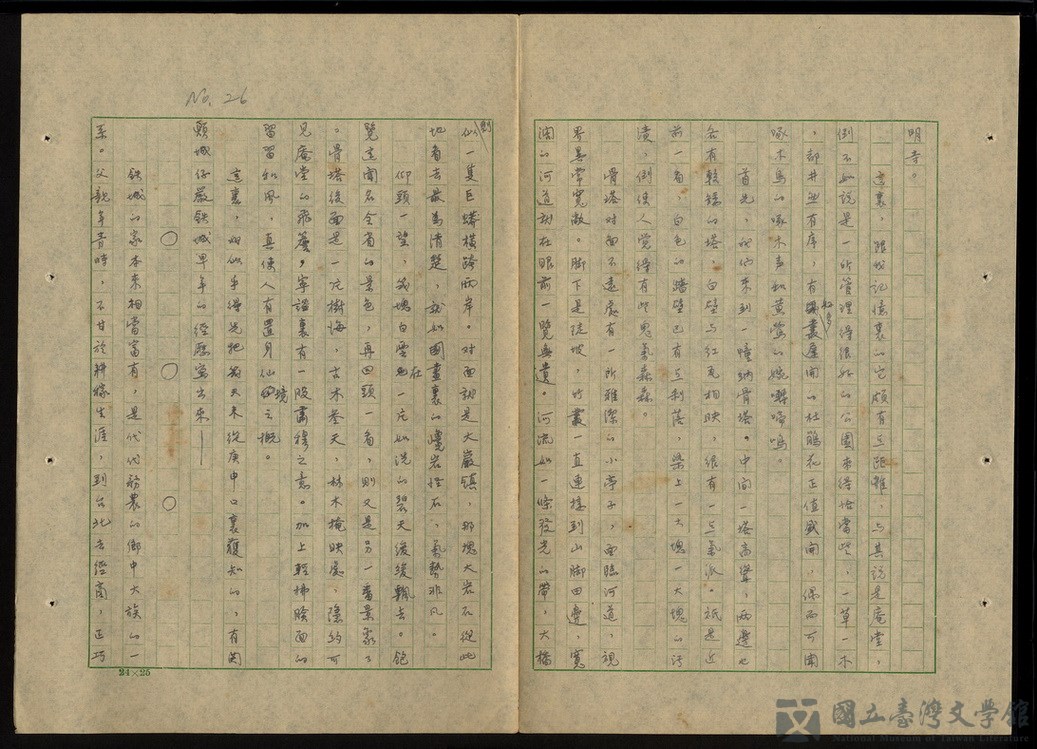 明寺。
這裏，跟我記憶裏的它頗有些距離，與其說是庵堂，
倒不如說是一所管理得很好的公園來得恰當些，一草一木
，都井然有序，有許多叢盛開的杜鵑花正值盛開，偶而可聞
啄木鳥的啄木聲和黃鶯的婉囀啼鳴。
首先，我們來到一幢納骨塔。中間一塔高聳，兩邊也
各有較矮的塔，白壁與紅瓦相映，很有一些氣派。祇是近
前一看，白色的牆壁已有些剝落，染上一大塊一大塊的污
漬，倒使人覺得有些鬼氣森森。
骨塔對面不遠處有一所雅潔的小亭子，面臨河道，視
界異常寬敞。腳下是陡坡，竹叢一直連接到山腳田邊，寬
濶的河道就在眼前一覽無遺。河流如一條發光的帶，大橋
則
似一隻巨蟒橫跨兩岸。對面就是大巖鎮，那塊大岩石從此
地看去最為清楚，就如圖畫裏的巉岩怪石，氣勢非凡。
仰頭一望，幾塊白雲在一片如洗的碧天緩緩飄去。飽
覽這聞名全省的景色，再回頭一看，則又是另一番景象了
。骨塔後面是一片樹海，古木參天，林木掩映處，隱約可
見庵堂的飛簷，寧謐裏有一股肅穆之意。加上輕拂臉面的
習習和風，真使人有置身仙境之概。
這裏，我似乎得先把幾天來從庚申口裏獲知的，有關
賴城仔嚴鉄城早年的經歷寫出來——
○　○　○
鉄城的家本來相當富有，是代代務農的鄉中大族的一
系。父親年青時，不甘於耕稼生涯，到台北去經商，正巧
No. 26
24×25
國立臺灣文學館
National Museum of Taiwan Literature